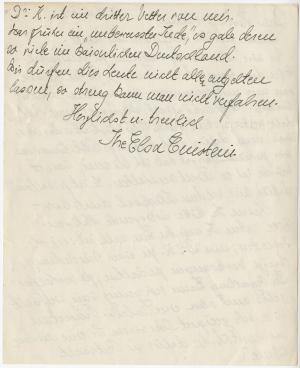 Dr. K. ist ein dritter Vetter von mir.
war früher ein „unbewusster Jude", es gab deren
so viele im kaiserlichen Deutschland.
Sie dürfen dies Leute nicht alle entgelten
lassen, so streng kann man nicht verfahren.
Herzlichst u. treulich
Ihre Elsa Einstein.